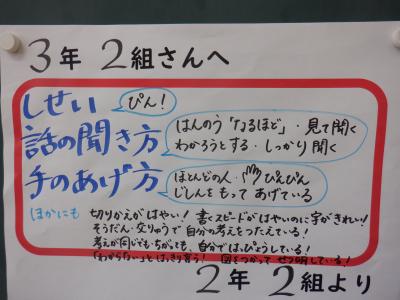 3年 2組さんへ
しせい ぴん!
話の聞き方 はんのう「なるほど」・見て聞く
わかろうとする・しっかり聞く
手のあげ方 ほとんどの人・ぴんぴん
じしんをもってあげている
ほかにも 切りかえがはやい! 書くスピードがはやいのに字がきれい!
そうだん・交りゅうで自分の考えをつたえている!
考えが同じでもちがっても、自分ではっぴょうしている!
「わからない」とはっきり言う! 図をつかってせつ明している!
2年 2組より